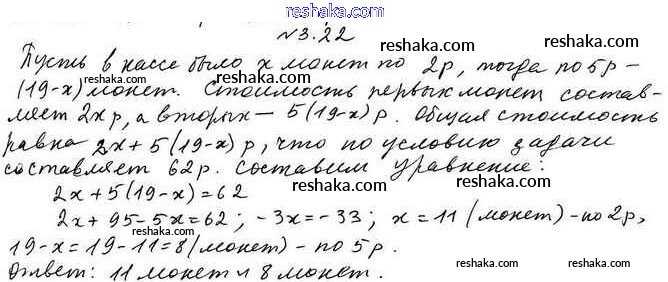 reshaka.com
№3.22
Пусть в кассе было x монет по 2р, тогда по 5р –
(19-x) монет. Стоимость первых монет состав-
ляет 2x р, а вторых – 5(19-x) р. Общая стоимость
равна 2x+5(19-x) р, что по условию задачи
составляет 62р. Составим уравнение:
2x+5(19-x)=62
2x+95-5x=62; -3x=-33; x=11 (монет) - по 2р,
19-x=19-11=8 (монет) - по 5р.
Ответ: 11 монет и 8 монет.
reshaka.com
reshaka.com
reshaka.com
reshaka.com
reshaka.com
reshaka.com
reshaka.com
reshaka.com
reshaka.com
reshaka.com
reshaka.com
reshaka.com